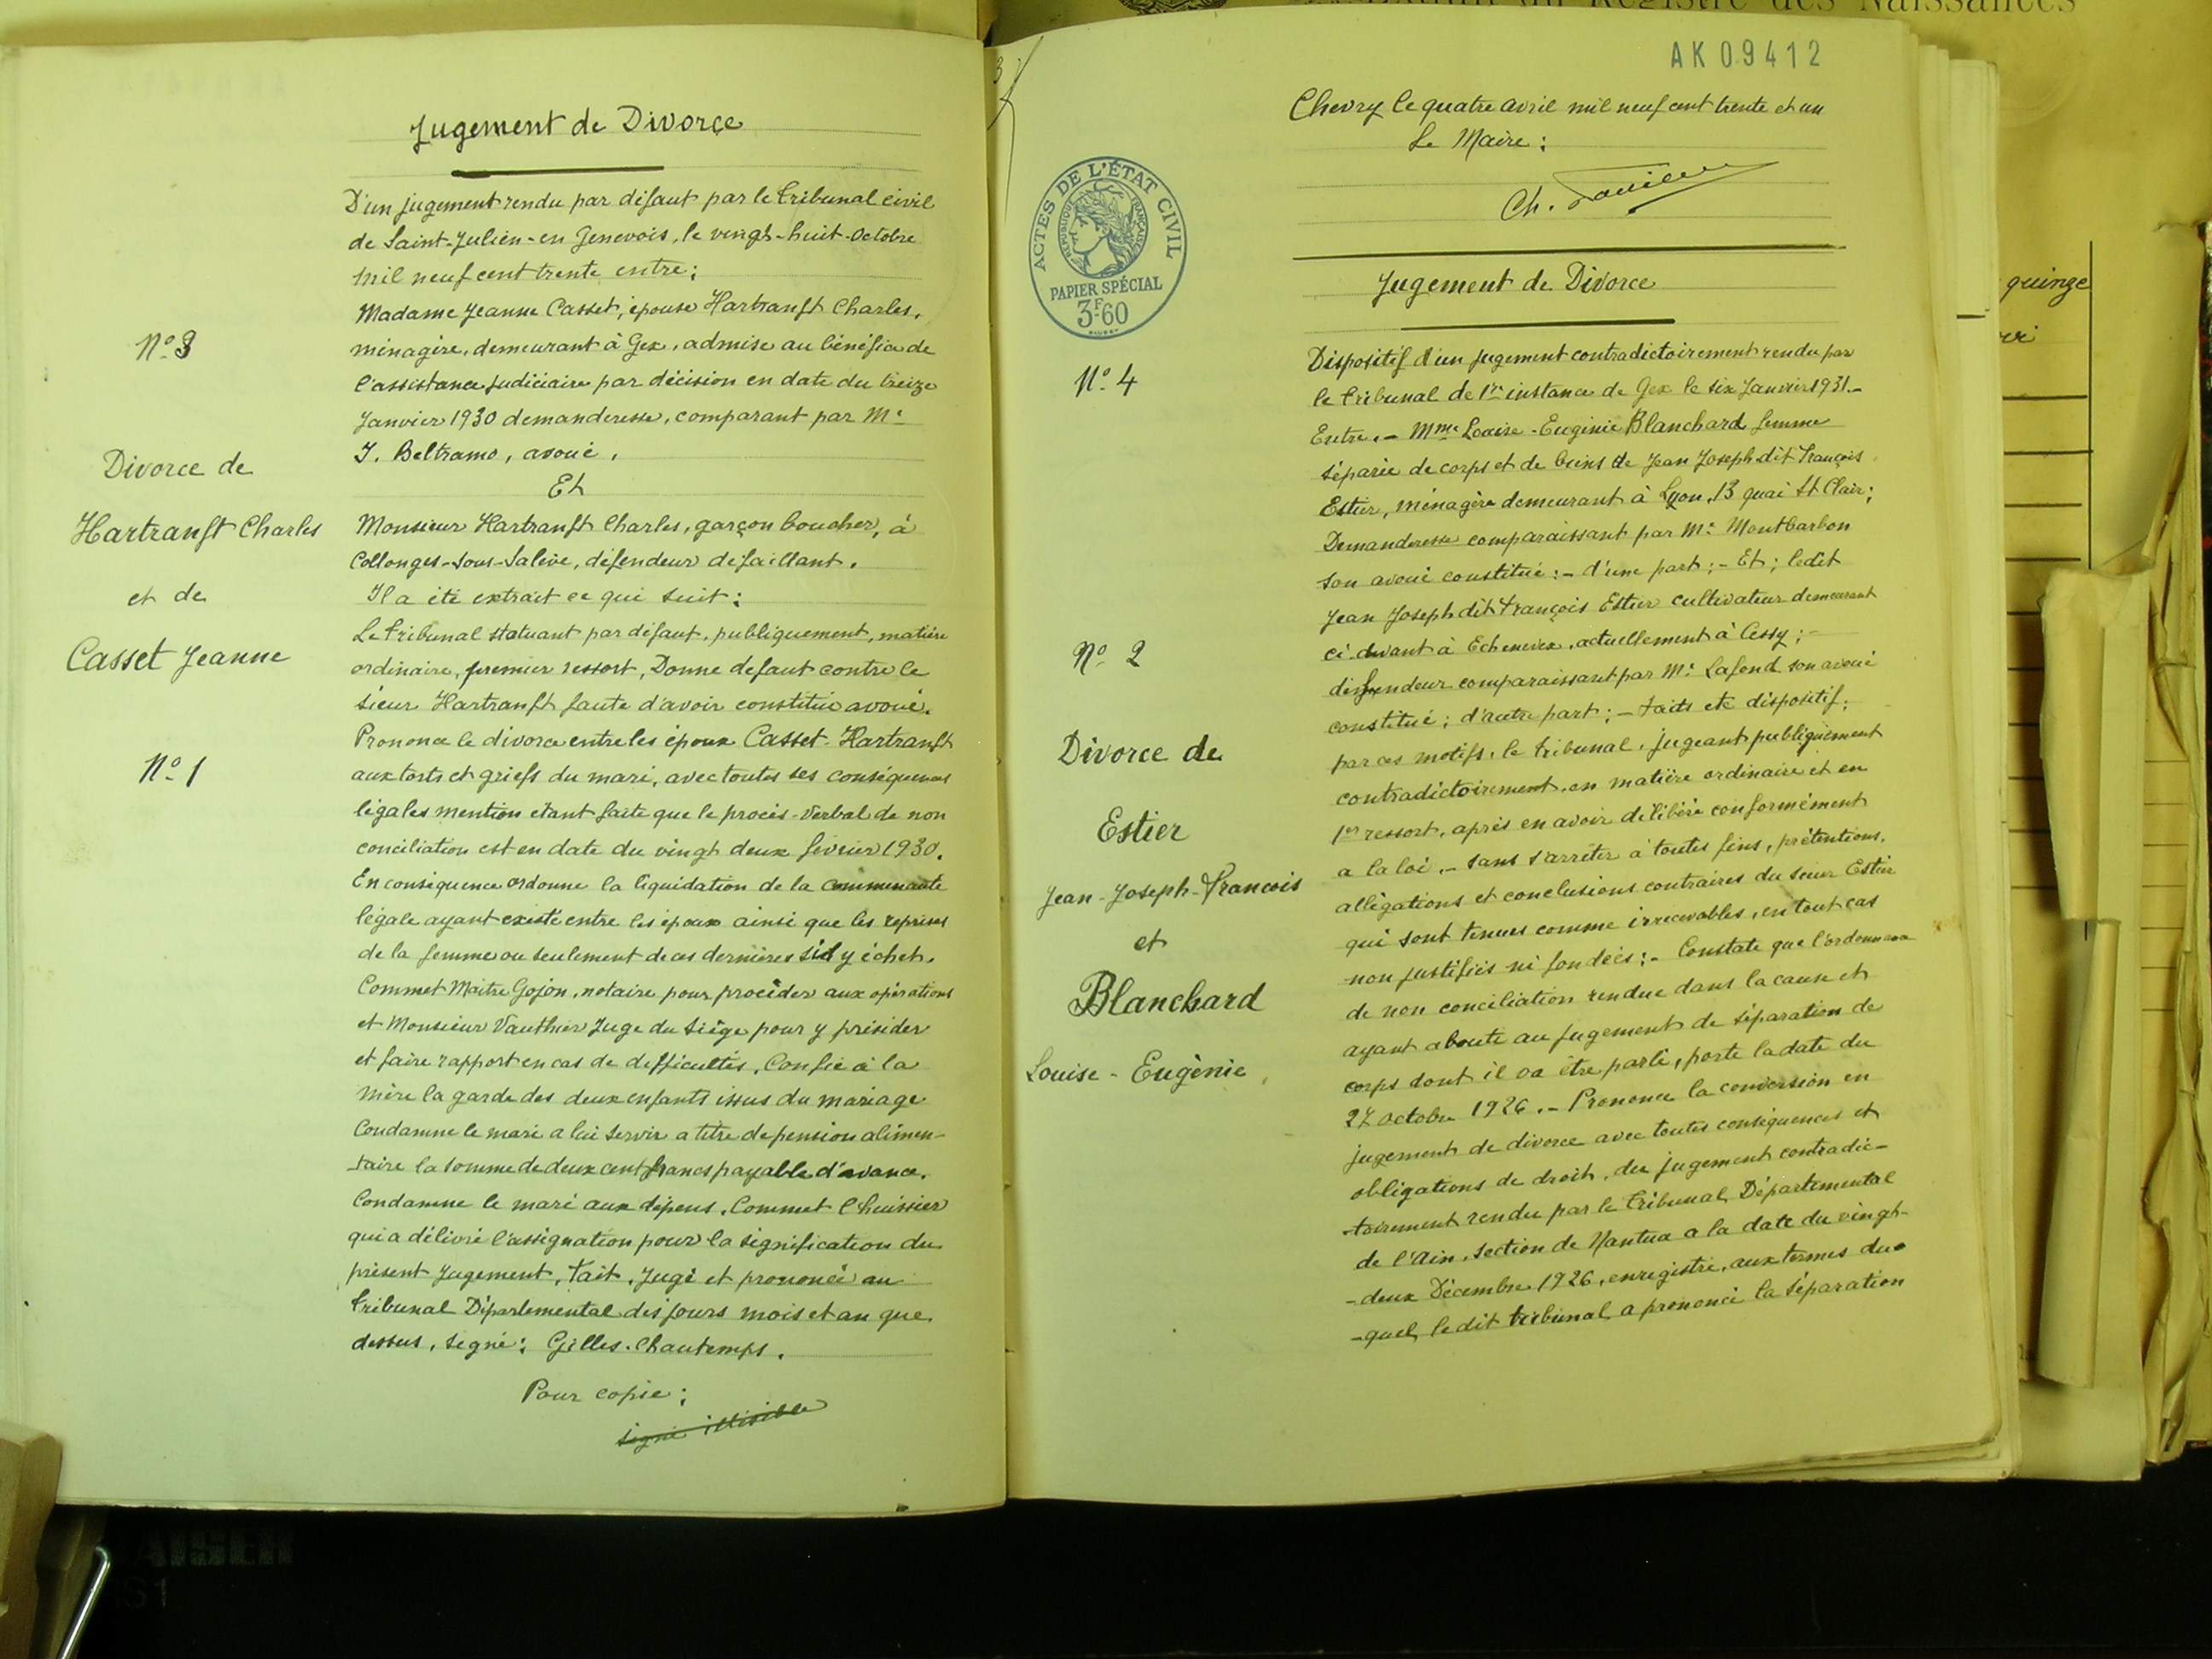 Jugement de Divorce
D'un jugement rendu par défaut par le Tribunal civil
de Saint-Julien-en Genevois, le vingt-huit-Octobre
mil neuf cent trente entre:
Madame Jeanne Casset, épouse Hartranft Charles,
ménagère, demeurant à Gex, admise au bénéfice de
l'assistance judiciaire par décision en date du treize
Janvier 1930 demanderesse, comparant par Me
J. Beltramo, avoué,
Et
Monsieur Hartranft Charles, garçon boucher, à
Collonges-sous-Salève, défendeur défaillant.
Il a été extrait ce qui suit:
Le Tribunal statuant par défaut, publiquement, matière
ordinaire, premier ressort, Donne défaut contre le
sieur Hartranft faute d'avoir constitué avoué.
Prononce le divorce entre les époux Casset-Hartranft
aux torts et griefs du mari, avec toutes ses conséquences
légales mention étant faite que le procès-verbal de non
conciliation est en date du vingt deux février 1930.
En conséquence ordonne la liquidation de la communauté
légale ayant existé entre les époux ainsi que les reprises
de la femme ou seulement de ces dernières s'il y échet.
Commet Maître Gojon, notaire pour procéder aux opérations
et Monsieur Vauthier Juge du Siège pour y présider
et faire rapport en cas de difficultés. Confie à la
mère la garde des deux enfants issus du mariage
Condamne le mari a lui servir a titre de pension alimen-
taire la somme de deux cent francs payable d'avance.
Condamne le mari aux dépens. Commet l'huissier
qui a délivré l'assignation pour la signification du
présent Jugement, Fait, Jugé et prononcé au
Tribunal Départemental des jours mois et an que
dessus, signé: Gilles. Chautemps.
Pour copie:
signé illisible
No 3
Divorce de
Hartranft Charles
et de
Casset Jeanne
No 1
AK 09412
Chevry le quatre avril mil neuf cent trente et un
Le Maire:
Ch.
ACTES DE L'ÉTAT CIVIL
RÉPUBLIQUE FRANÇAISE
PAPIER SPÉCIAL
3F60
Jugement de Divorce
No 4
No 2
Divorce de
Estier
Jean-Joseph-François
et
Blanchard
Louise-Eugénie
Dispositif d'un jugement contradictoirement rendu par
le tribunal de 1re instance de Gex le six Janvier 1931.-
Entre.- Mme Louise-Eugénie Blanchard femme
séparée de corps et de biens de Jean Joseph dit François
Estier, ménagère demeurant à Lyon, 13 quai St Clair;
Demanderesse comparaissant par Me Montbarbon
son avoué constitué:- d'une part;- Et; ledit
Jean Joseph dit François Estier cultivateur demeurant
ci-devant à Echenevex, actuellement à Cessy;-
défendeur comparaissant par Me Lafond son avoué
constitué; d'autre part;- Faits etc dispositif;
par ces motifs, le tribunal, jugeant publiquement
contradictoirement, en matière ordinaire et en
1er ressort, après en avoir délibéré conformément
a la loi.- sans s'arrêter à toutes fins, prétentions,
allégations et conclusions contraires du sieur Estier
qui sont tenues comme irrecevables, en tout cas
non justifiés ni fondées:- Constate que l'ordonnance
de non conciliation rendue dans la cause et
ayant aboute au jugement de séparation de
corps dont il va être parlé, porte la date du
27 octobre 1926.- Prononce la conversion en
jugement de divorce avec toutes conséquences et
obligations de droit, du jugement contradic-
-toirement rendu par le tribunal Départemental
de l'Ain, section de Nantua a la date du vingt-
-deux Décembre 1926, enregistré, aux termes du-
-quel, ledit tribunal a prononcé la séparation
Registre des Naissances
quinze